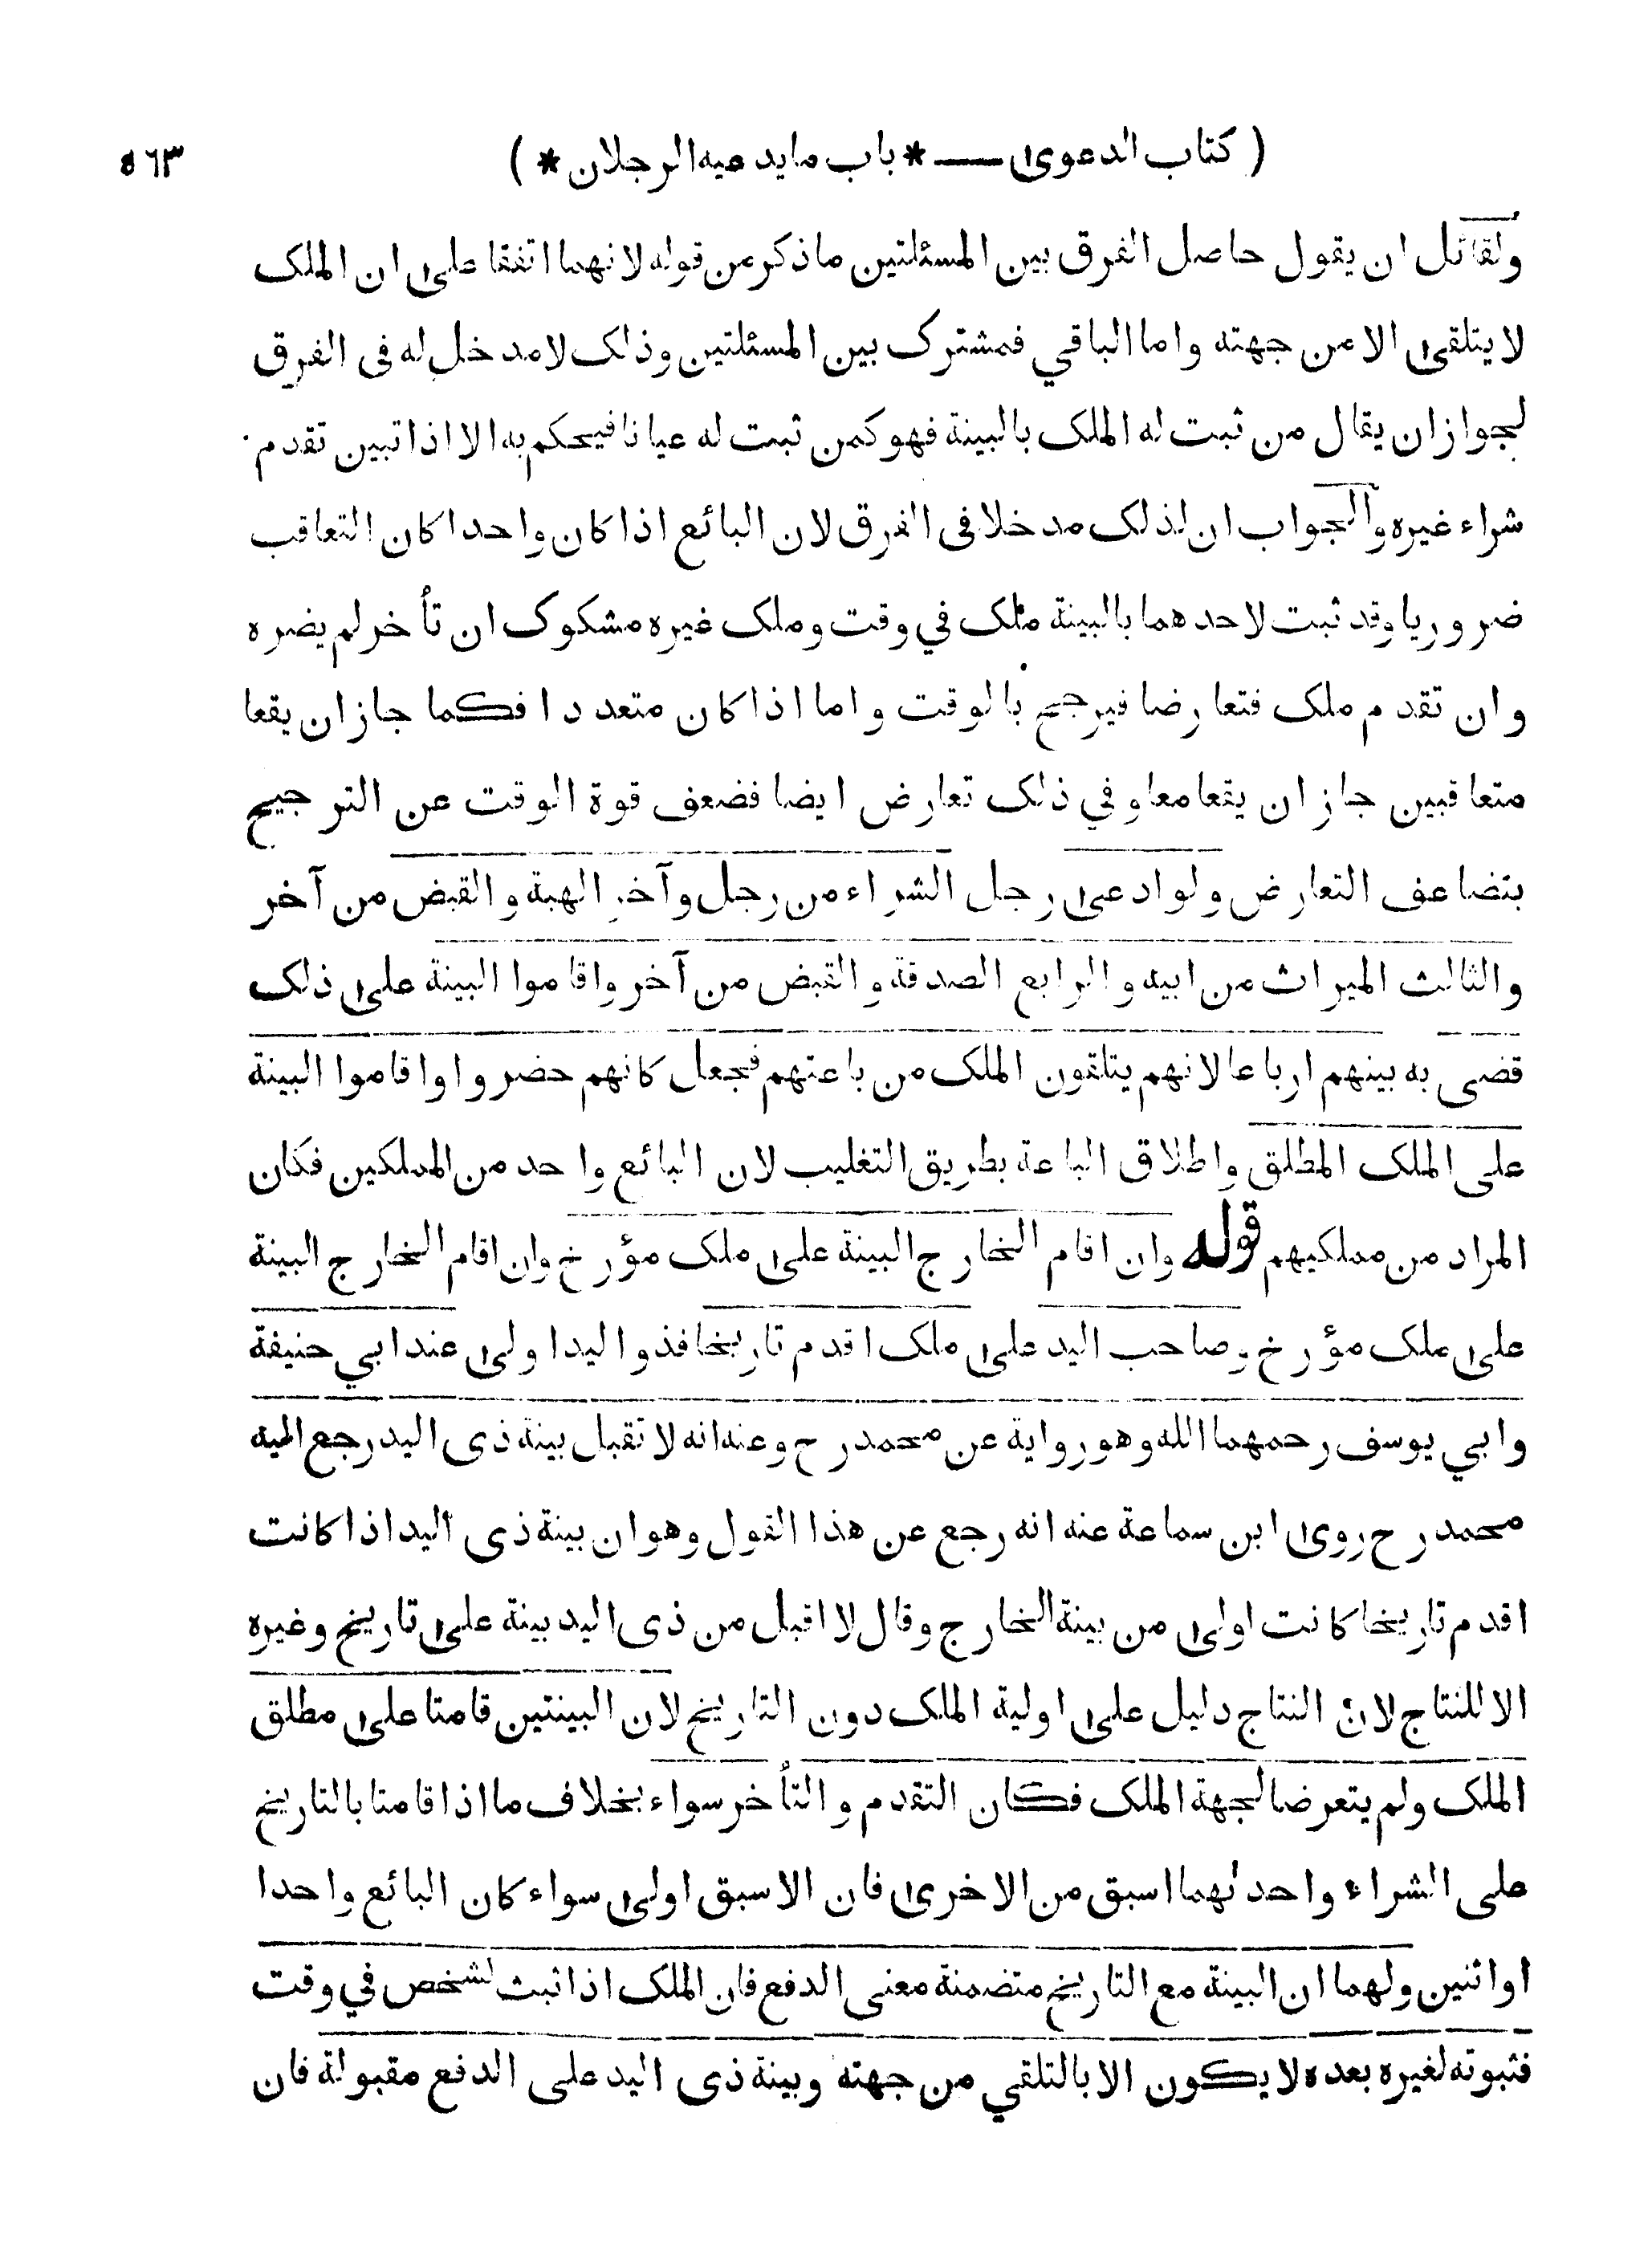 ( كتاب الدعوى — * باب ما يدعيه الرجلان * ) ٥٦٣
ولقائل ان يقول حاصل الفرق بين المسئلتين ما ذكر من قوله لانهما اتفقا على ان الملك
لا يتلقى الا من جهته واما الباقي فمشترك بين المسئلتين وذلك لا مدخل له فى الفرق
لجواز ان يقال من ثبت له الملك بالبينة فهو كمن ثبت له عيانا فيحكم به الا اذا تبين تقدم
شراء غيره والجواب ان لذلك مدخلا فى الفرق لان البائع اذا كان واحدا كان التعاقب
ضروريا وقد ثبت لاحدهما بالبينة ملك في وقت وملك غيره مشكوك ان تأخر لم يضره
وان تقدم ملك فتعارضا فيرجح بالوقت واما اذا كان متعددا فكما جاز ان يقعا
متعاقبين جاز ان يقعا معا وفي ذلك تعارض ايضا فضعف قوة الوقت عن الترجيح
بتضاعف التعارض ولو ادعى رجل الشراء من رجل وآخر الهبة والقبض من آخر
والثالث الميراث من ابيه والرابع الصدقة والقبض من آخر واقاموا البينة على ذلك
قضى به بينهم ارباعا لانهم يتلقون الملك من باعتهم فجعل كانهم حضروا واقاموا البينة
على الملك المطلق واطلاق الباعة بطريق التغليب لان البائع واحد من المملكين فكان
المراد من مملكيهم قوله وان اقام الخارج البينة على ملك مؤرخ وان اقام الخارج البينة
على ملك مؤرخ وصاحب اليد على ملك اقدم تاريخا فذو اليد اولى عند ابي حنيفة
وابي يوسف رحمهما الله وهو رواية عن محمد رح وعنه انه لا تقبل بينة ذى اليد رجع اليه
محمد رح روى ابن سماعة عنه انه رجع عن هذا القول وهو ان بينة ذى اليد اذا كانت
اقدم تاريخا كانت اولى من بينة الخارج وقال لا اقبل من ذى اليد بينة على تاريخ وغيره
الا للنتاج لان النتاج دليل على اولية الملك دون التاريخ لان البينتين قامتا على مطلق
الملك ولم يتعرضا لجهة الملك فكان التقدم والتأخر سواء بخلاف ما اذا قامتا بالتاريخ
على الشراء واحدلهما اسبق من الاخرى فان الاسبق اولى سواء كان البائع واحدا
او اثنين ولهما ان البينة مع التاريخ متضمنة معنى الدفع فان الملك اذا ثبت لشخص في وقت
فثبوته لغيره بعده لا يكون الا بالتلقي من جهته وبينة ذى اليد على الدفع مقبولة فان